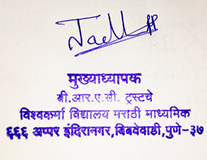 मुख्याध्यापक
बी.आर.ए.सी. ट्रस्टचे
विश्वकर्मा विद्यालय मराठी माध्यमिक
६६६ अप्पर इंदिरानगर, बिबवेवाडी, पुणे-३७